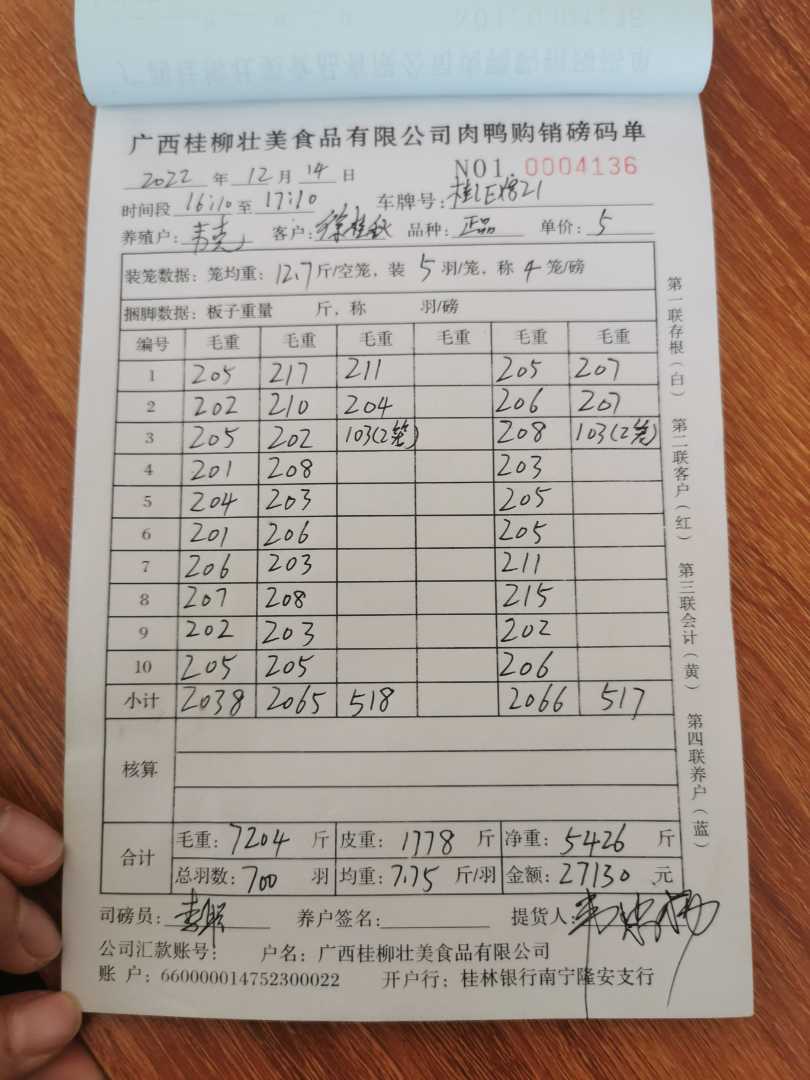 广西桂柳壮美食品有限公司肉鸭购销磅码单
2022 年 12 月 14 日 NO1 0004136
时间段 16:10 至 17:10 车牌号:
养殖户: 客户: 品种: 正品 单价: 5
装笼数据: 笼均重: 12.7 斤/空笼, 装 5 羽/笼, 称 4 笼/磅
捆脚数据: 板子重量 斤, 称 羽/磅
编号 毛重 毛重 毛重 毛重 毛重 毛重
1 205 217 211 205 207
2 202 210 204 206 207
3 205 202 103(2笼) 208 103(2笼)
4 201 208 203
5 204 203 205
6 201 206 205
7 206 203 211
8 207 208 215
9 202 203 202
10 205 205 206
小计 2038 2065 518 2066 517
核算
合计 毛重: 7204 斤 皮重: 1778 斤 净重: 5426 斤
总羽数: 700 羽 均重: 7.75 斤/羽 金额: 27130 元
司磅员: 养户签名: 提货人:
公司汇款账号: 户名: 广西桂柳壮美食品有限公司
账 户: 660000014752300022 开户行: 桂林银行南宁隆安支行
第一联存根(白) 第二联客户(红) 第三联会计(黄) 第四联养户(蓝)